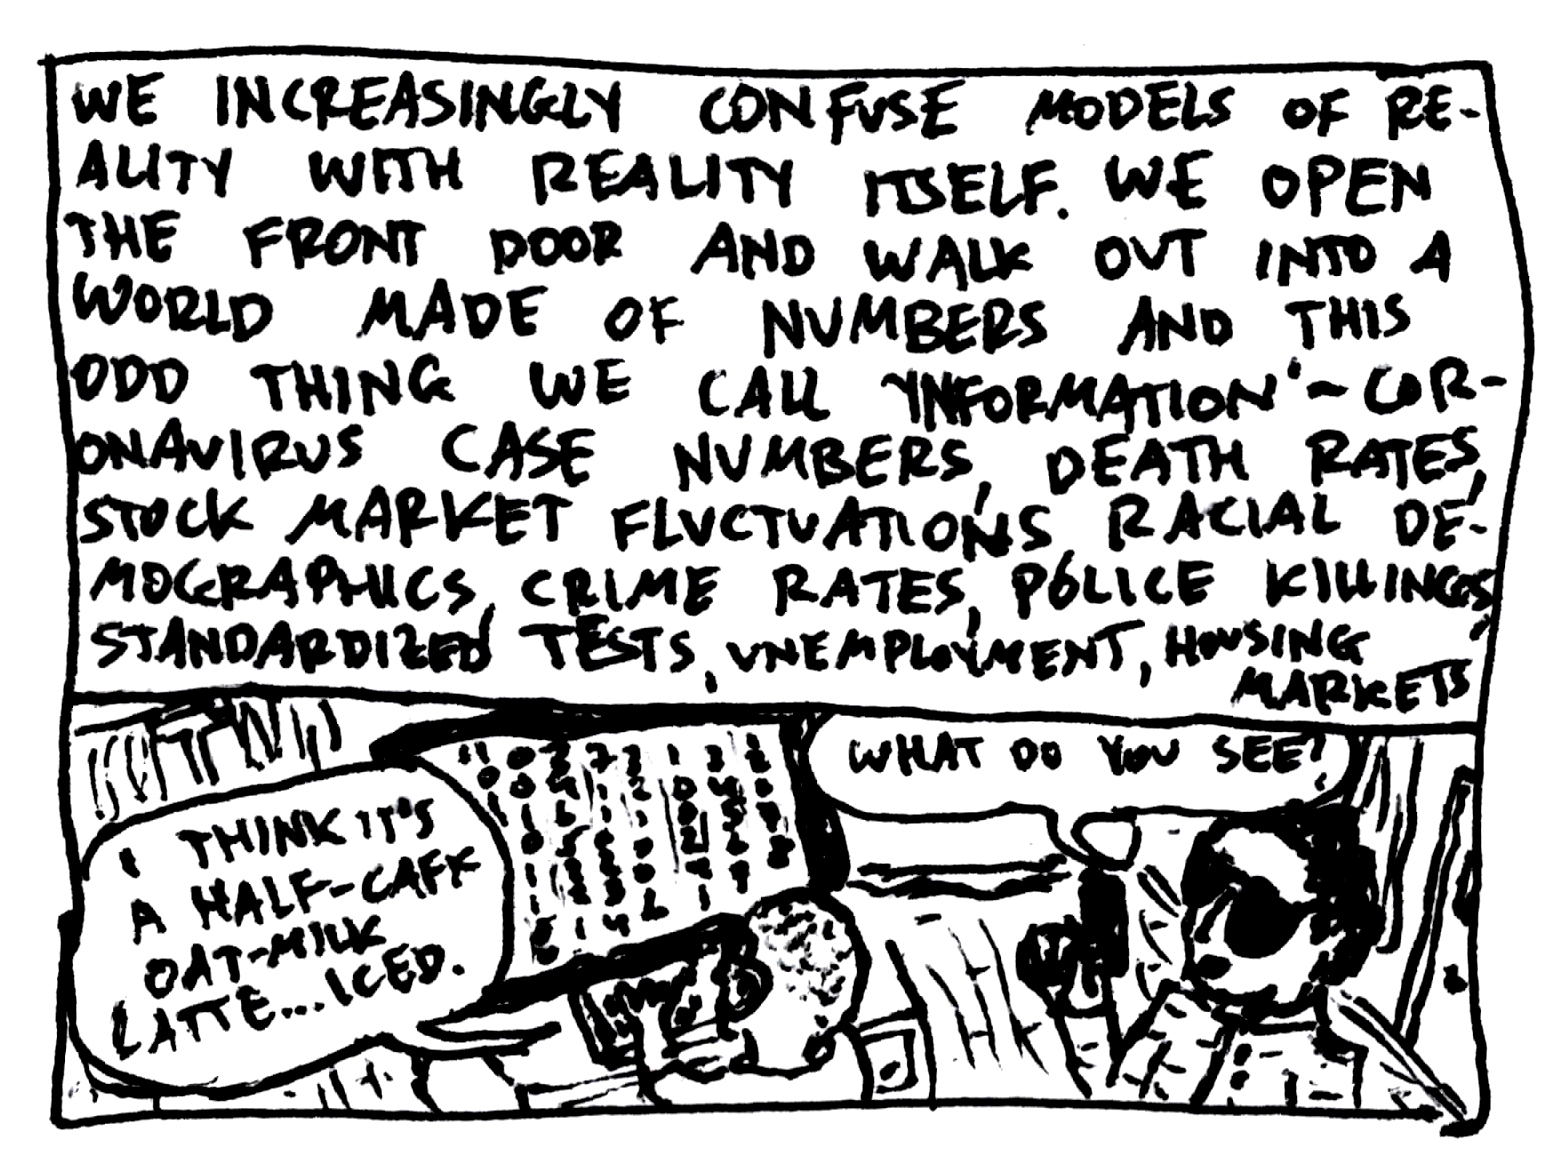 WE INCREASINGLY CONFUSE MODELS OF RE-
ALITY WITH REALITY ITSELF. WE OPEN
THE FRONT DOOR AND WALK OUT INTO A
WORLD MADE OF NUMBERS AND THIS
ODD THING WE CALL 'INFORMATION' - COR-
ONAVIRUS CASE NUMBERS, DEATH RATES,
STOCK MARKET FLUCTUATIONS, RACIAL DE-
MOGRAPHICS, CRIME RATES, POLICE KILLINGS,
STANDARDIZED TESTS, UNEMPLOYMENT, HOUSING
MARKETS
WHAT DO YOU SEE?
I THINK IT'S
A HALF-CAFF
OAT-MILK
LATTE...ICED.